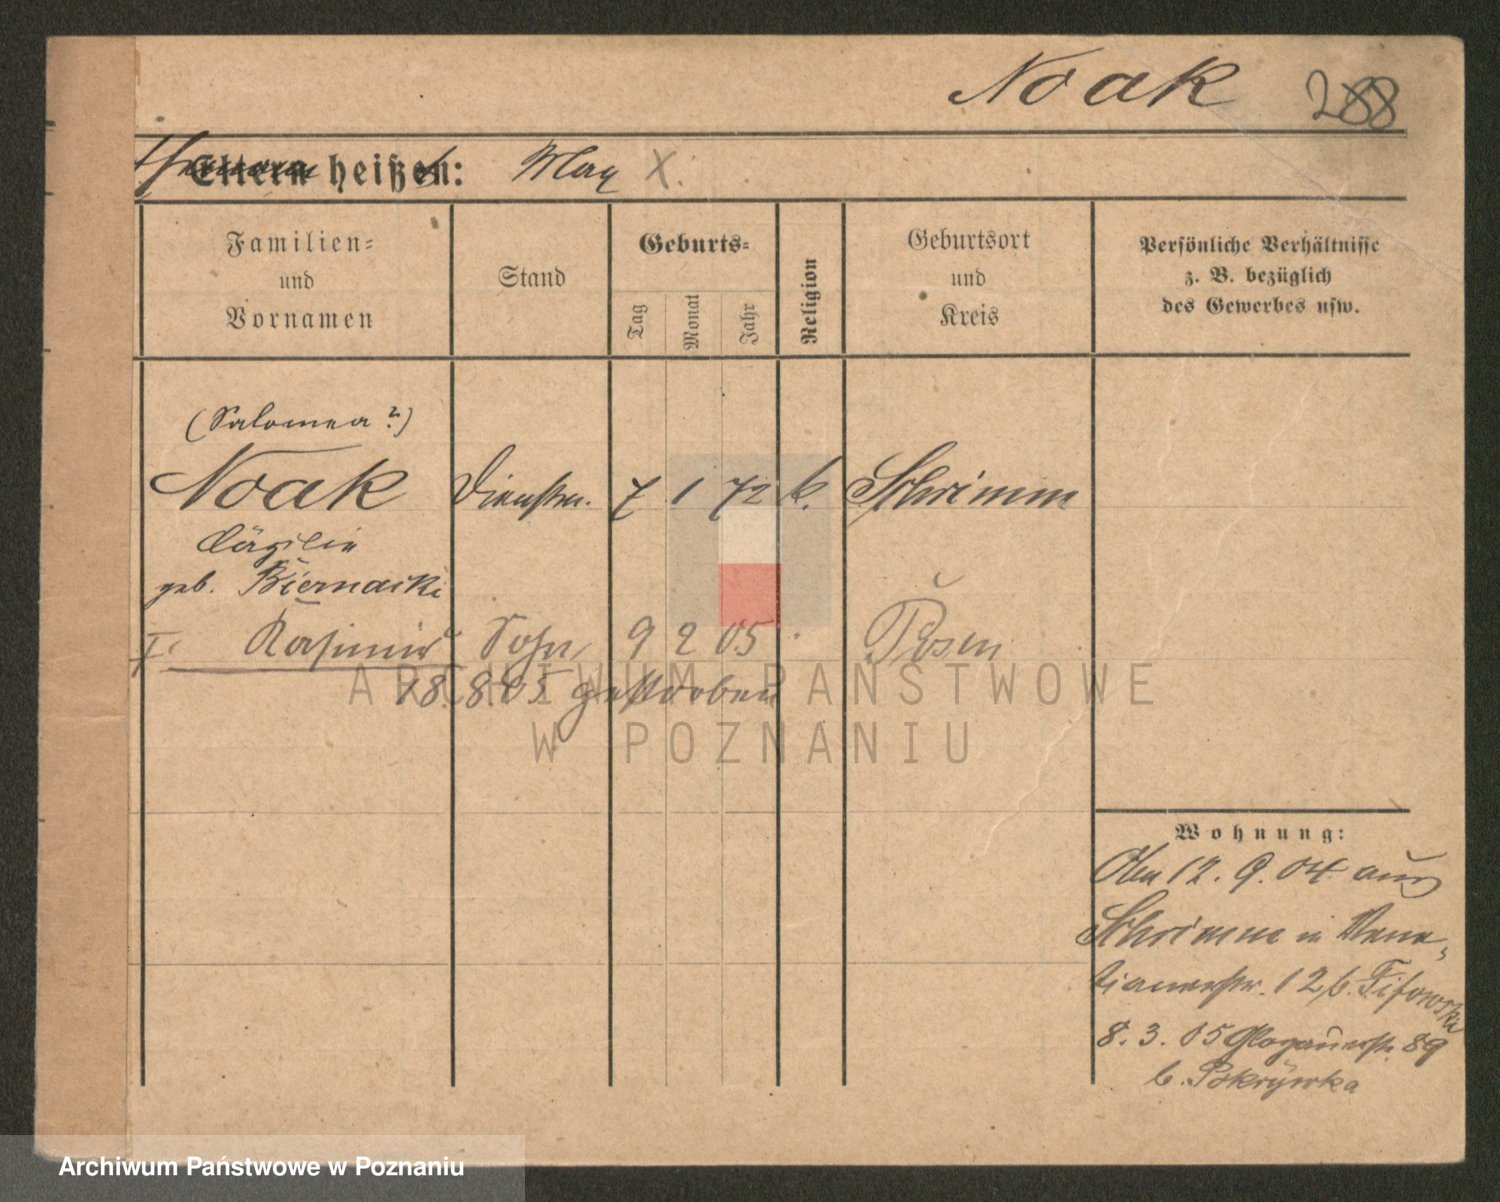 Noak 288
Eltern heißen: Max X.
Familien=
und
Vornamen
Stand
Geburts=
Tag
Monat
Jahr
Religion
Geburtsort
und
Kreis
Persönliche Verhältnisse
z. B. bezüglich
des Gewerbes usw.
(Salomea?)
Noak Dienstm. 7 1 72 k. Schrimm
Cäzilie
geb. Biernacki
I. Kasimir Sohn 9 2 05 Posen
18.8.05 gestorben
ARCHIWUM PAŃSTWOWE
W POZNANIU
Wohnung:
12. 9. 04 aus
Schrimm in Vene-
tianerstr. 12 b.
8. 3. 05 Glogauerstr. 89
b. Pokrywka
Archiwum Państwowe w Poznaniu